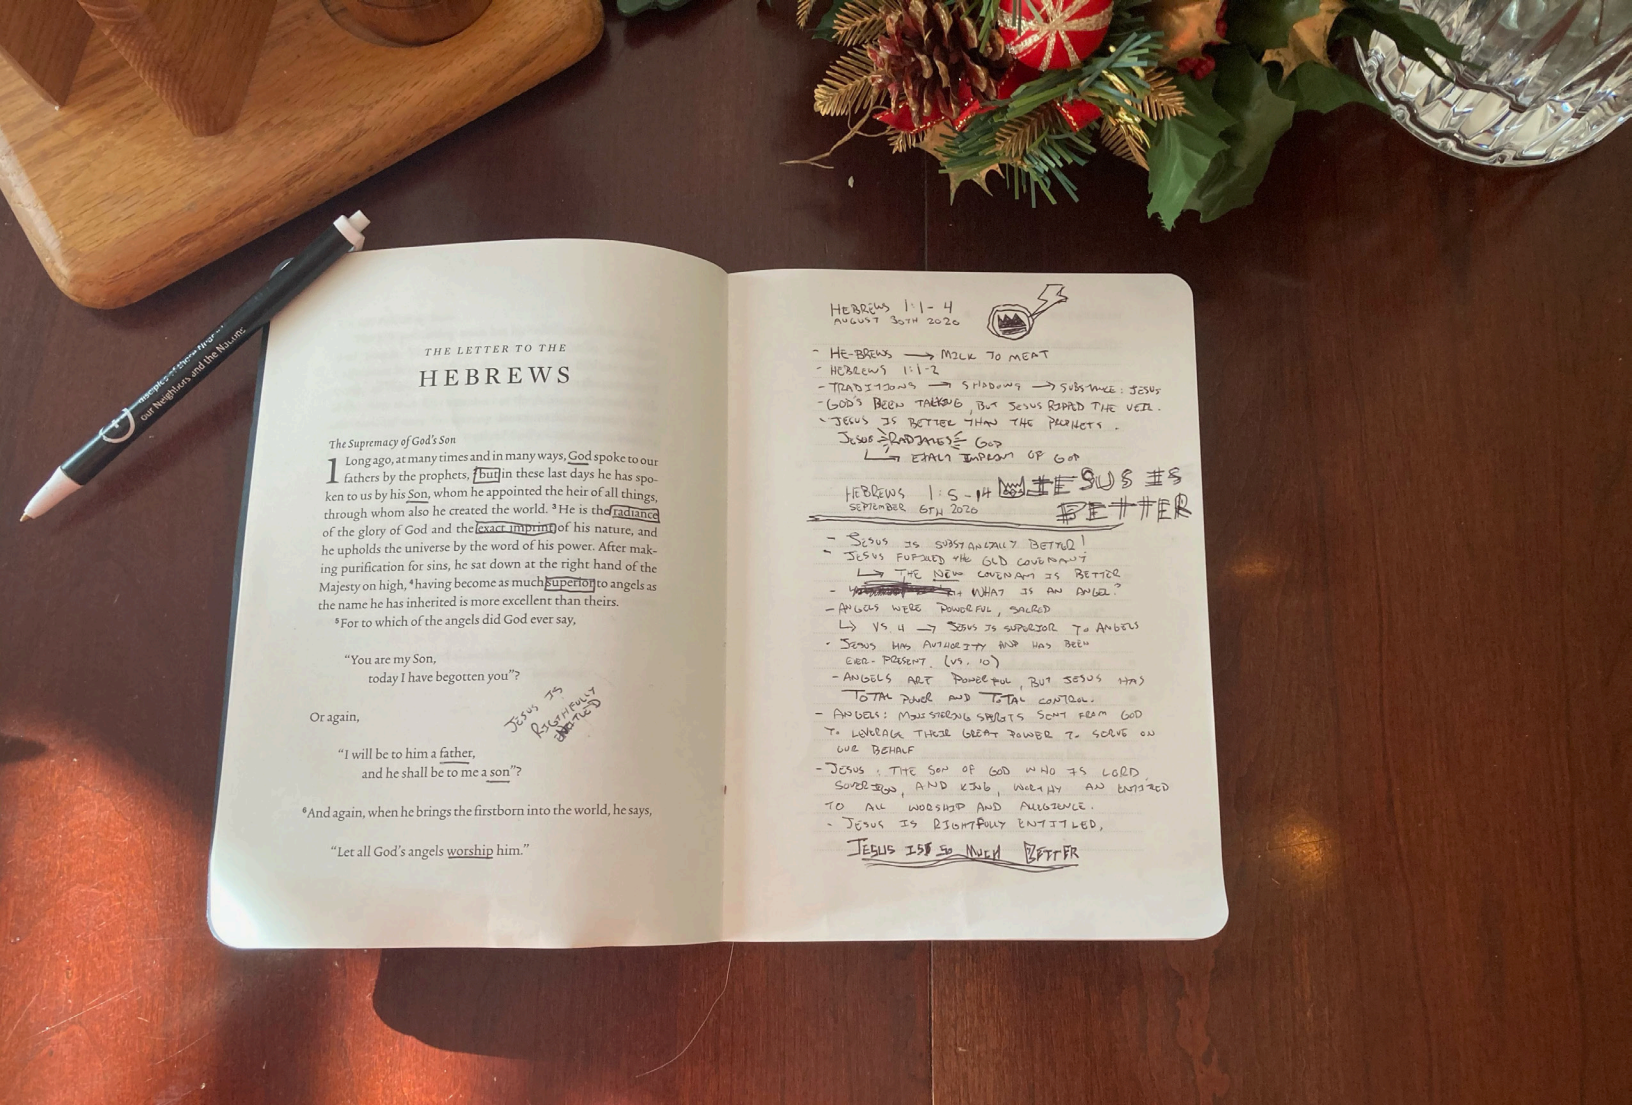 disciples of
our Neighbors and the Nations
THE LETTER TO THE
HEBREWS
The Supremacy of God's Son
1 Long ago, at many times and in many ways, God spoke to our
fathers by the prophets, ²but in these last days he has spo-
ken to us by his Son, whom he appointed the heir of all things,
through whom also he created the world. ³He is the radiance
of the glory of God and the exact imprint of his nature, and
he upholds the universe by the word of his power. After mak-
ing purification for sins, he sat down at the right hand of the
Majesty on high, ⁴having become as much superior to angels as
the name he has inherited is more excellent than theirs.
⁵For to which of the angels did God ever say,
“You are my Son,
today I have begotten you”?
JESUS IS
RIGTHFULLY
ENTITLED
Or again,
“I will be to him a father,
and he shall be to me a son”?
⁶And again, when he brings the firstborn into the world, he says,
“Let all God's angels worship him.”
HEBREWS 1:1-4
AUGUST 30TH 2020
- HE-BREWS → MILK TO MEAT
- HEBREWS 1:1-2
- TRADITIONS → SHADOWS → SUBSTANCE: JESUS
- GOD'S BEEN TALKING, BUT JESUS RIPPED THE VEIL.
- JESUS IS BETTER THAN THE PROPHETS.
JESUS RADIATES GOD
↳ EXACT IMPRINT OF GOD
JESUS IS
BETTER
HEBREWS 1:5-14
SEPTEMBER 6TH 2020
- JESUS IS SUBSTANCIALLY BETTER!
- JESUS FUFILLED THE OLD COVENANT
↳ THE NEW COVENANT IS BETTER
- WHAT IS AN ANGEL?
- ANGELS WERE POWERFUL, SACRED
↳ VS. 4 → JESUS IS SUPERIOR TO ANGELS
- JESUS HAS AUTHORITY AND HAS BEEN
EVER-PRESENT. (VS. 10)
- ANGELS ART POWERFUL, BUT JESUS HAS
TOTAL POWER AND TOTAL CONTROL.
- ANGELS: MINISTERING SPIRITS SENT FROM GOD
TO LEVERAGE THEIR GREAT POWER TO SERVE ON
OUR BEHALF
- JESUS: THE SON OF GOD WHO IS LORD,
SOVERIGN, AND KING, WORTHY AN ENTITLED
TO ALL WORSHIP AND ALLEGIENCE.
- JESUS IS RIGHTFULLY ENTITLED,
JESUS IS SO MUCH BETTER